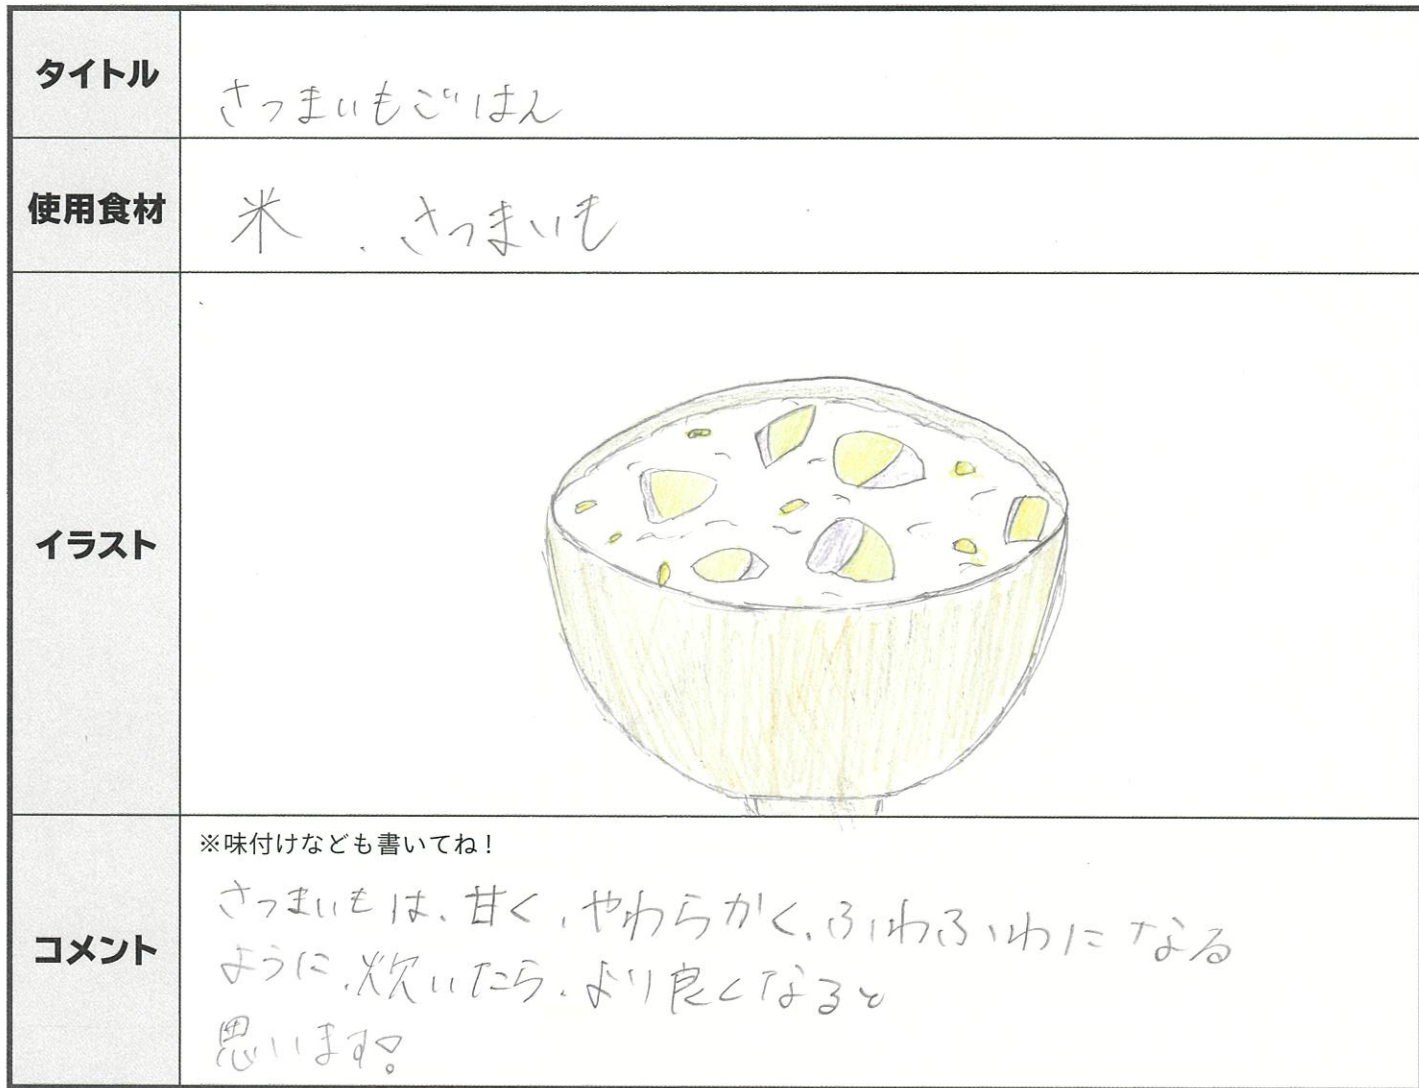 タイトル
さつまいもごはん
使用食材
米、さつまいも
イラスト
コメント
※味付けなども書いてね！
さつまいもは、甘く、やわらかく、ふわふわになる
ように、炊いたら、より良くなると
思います!